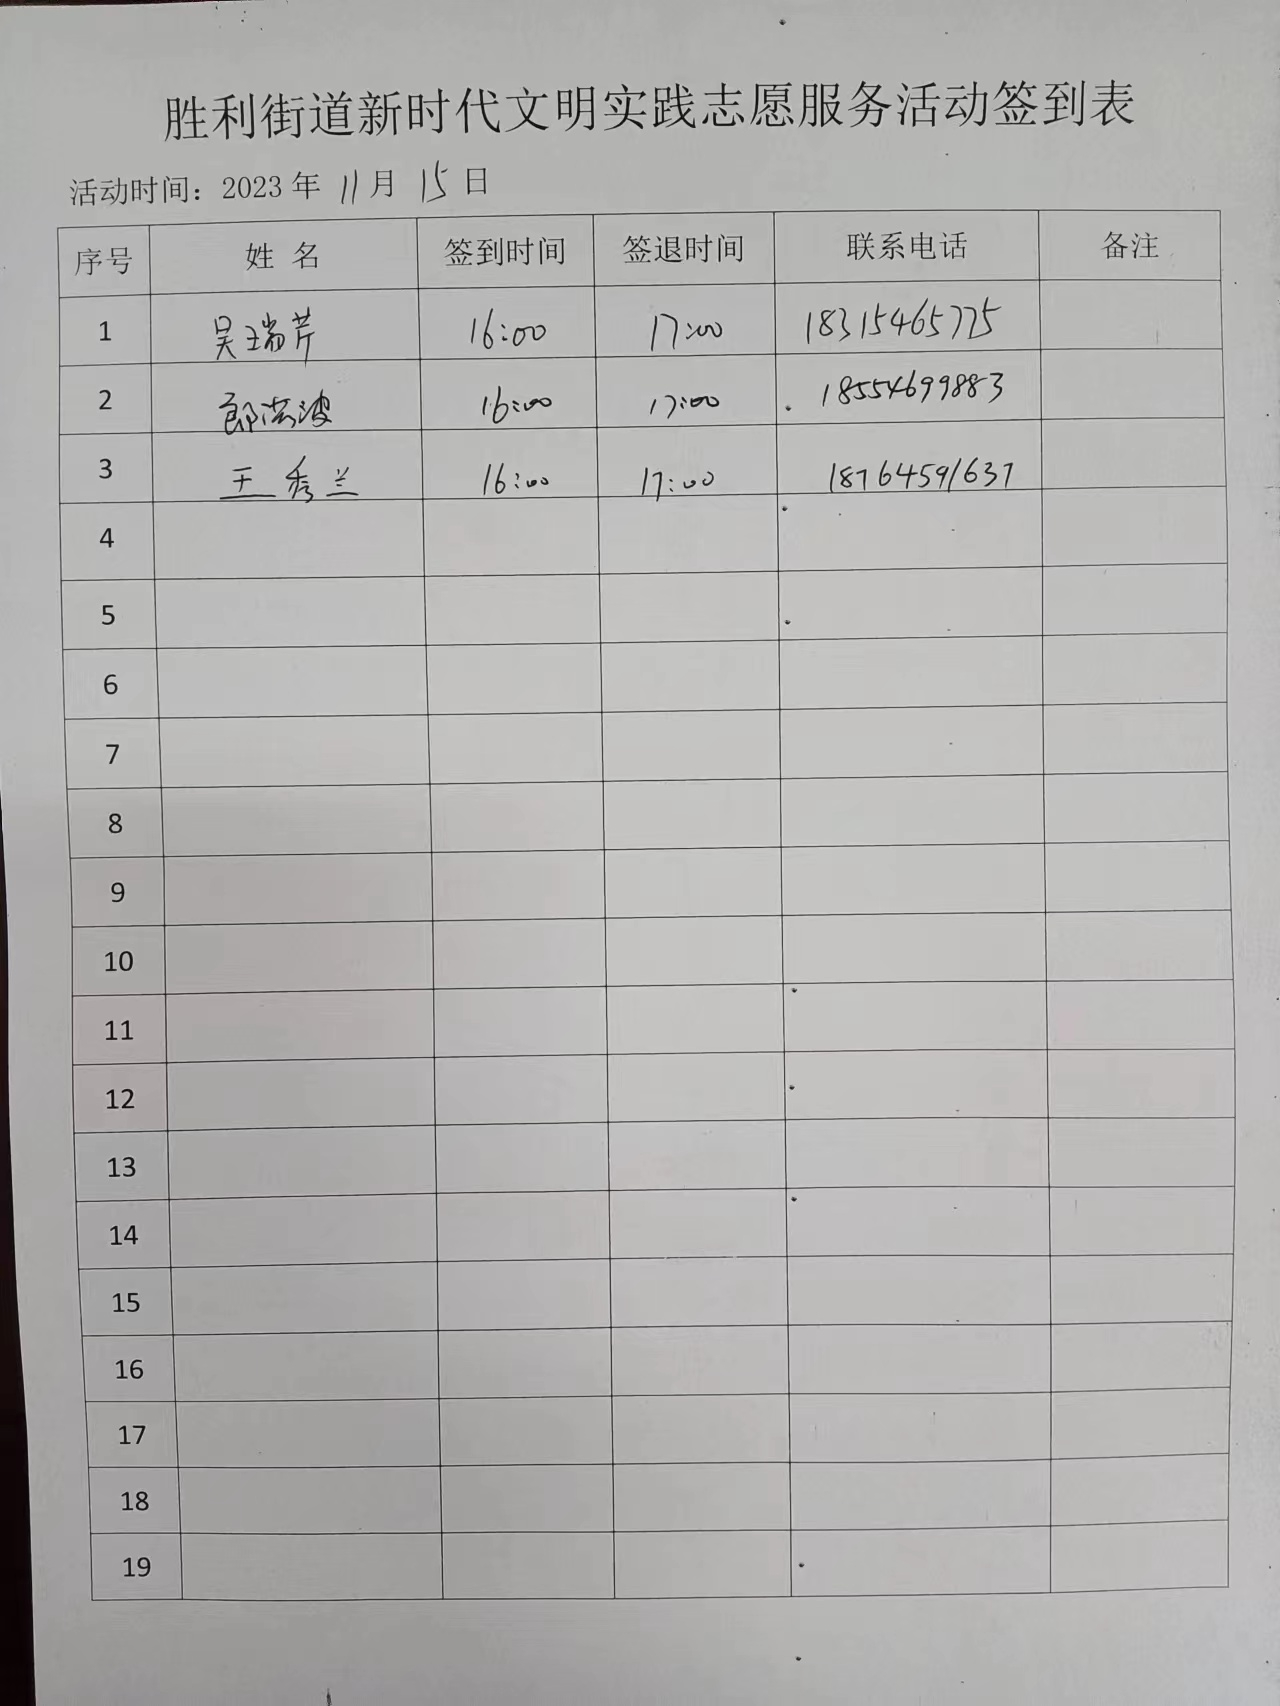 胜利街道新时代文明实践志愿服务活动签到表
活动时间：2023 年 11 月 15 日
序号 姓 名 签到时间 签退时间 联系电话 备注
1 吴瑞芹 16:00 17:00 18315465775
2 郎洪波 16:00 17:00 18554699883
3 王秀兰 16:00 17:00 18764591637
4
5
6
7
8
9
10
11
12
13
14
15
16
17
18
19